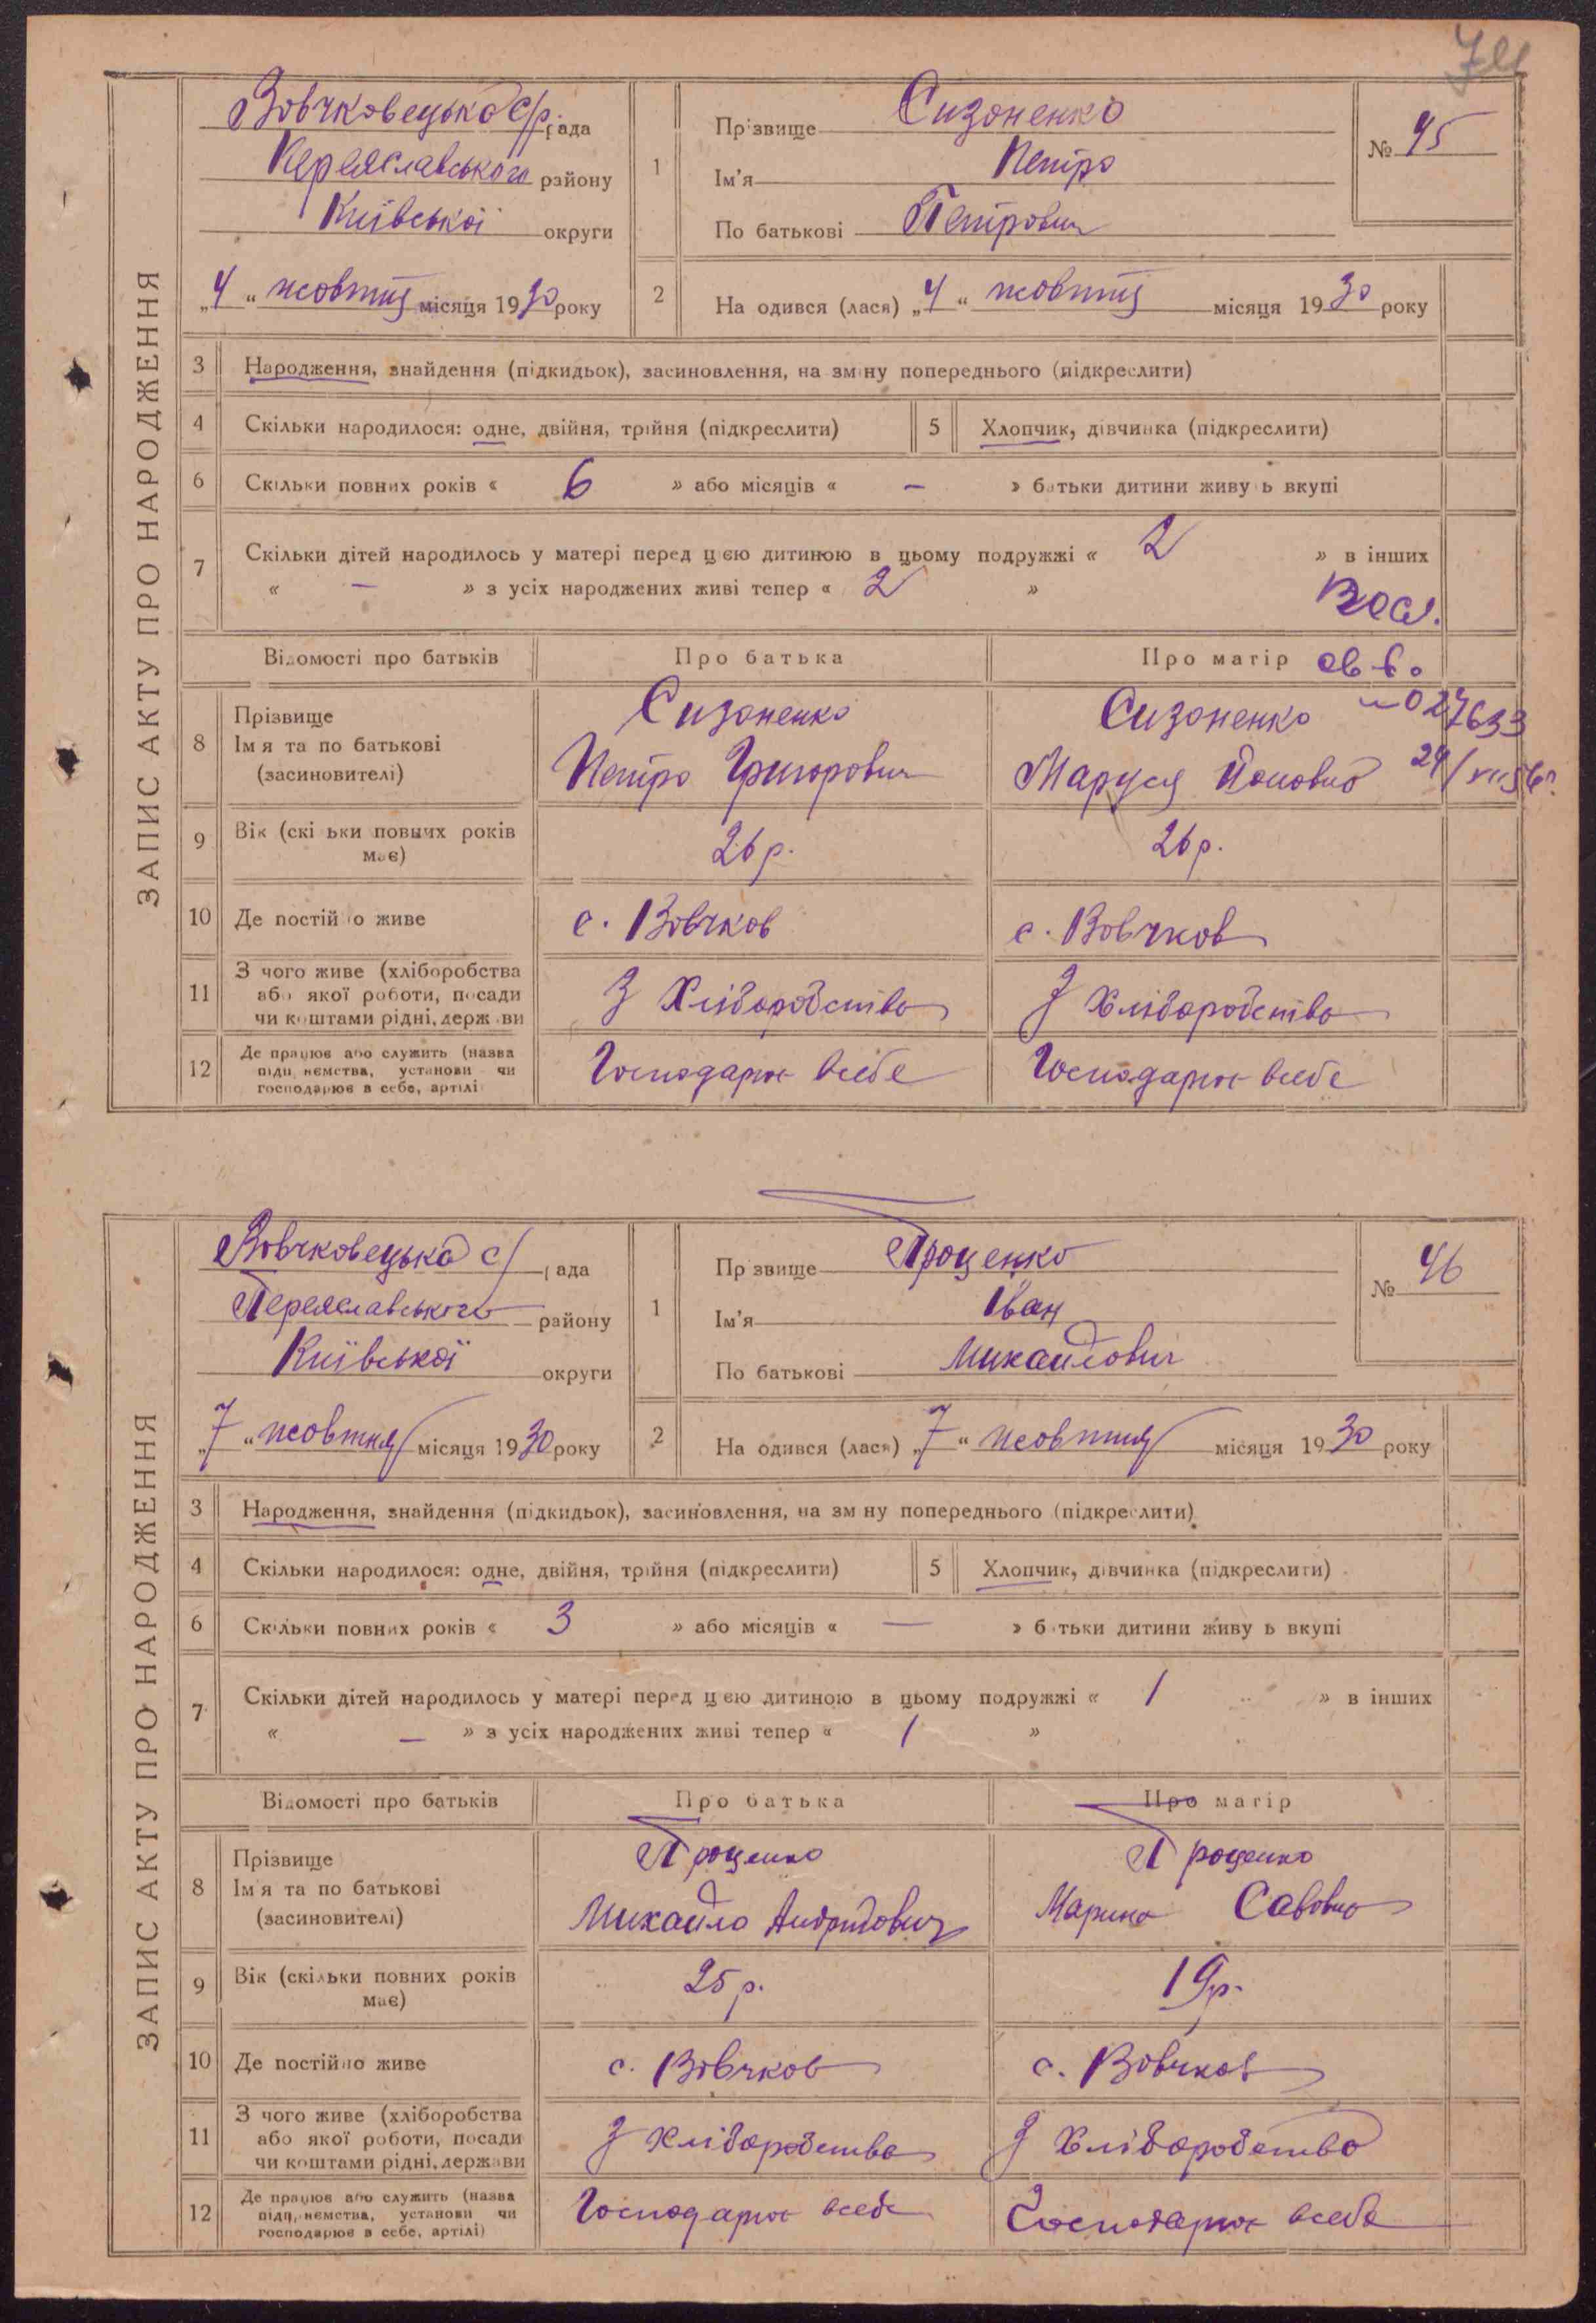 74
ЗАПИС АКТУ ПРО НАРОДЖЕННЯ
Вовчковецька с/р. рада
Переяславського району
Київської округи
„4“ жовтня місяця 1930 року
1
Прізвище Сизоненко
Ім'я Петро
По батькові Петрович
№ 45
2 На одився (лася) „4“ жовтня місяця 1930 року
3 Народження, знайдення (підкидьок), засиновлення, на зм ну попереднього (підкреслити)
4 Скільки народилося: одне, двійня, трійня (підкреслити)
5 Хлопчик, дівчинка (підкреслити)
6 Скільки повних років « 6 » або місяців « – » батьки дитини живу ь вкупі
7 Скільки дітей народилось у матері перед цією дитиною в цьому подружжі « 2 » в інших
« – » з усіх народжених живі тепер « 2 »
Відомості про батьків Про батька Про матір
8 Прізвище
Ім я та по батькові
(засиновителі)
Сизоненко
Петро Григорович
Сизоненко
Маруся Йоповна
027633
9 Вік (скі ьки повних років
має)
26 р.
26 р.
10 Де постій о живе
с. Вовчков
с. Вовчков
11 З чого живе (хліборобства
або якої роботи, посади
чи коштами рідні, держ ви
З Хліборобства
З Хліборобства
12 Де працює або служить (назва
підп, ємства, установи чи
господарює в себе, артілі
Господарює всебе
Господарює всебе
ЗАПИС АКТУ ПРО НАРОДЖЕННЯ
Вовчковецька с/ рада
Переяславського району
Київської округи
„7“ жовтня місяця 1930 року
1
Пр звище Проценко
Ім'я Іван
По батькові Михайлович
№ 46
2 На одився (лася) „7“ жовтня місяця 1930 року
3 Народження, знайдення (підкидьок), засиновлення, на зм ну попереднього (підкреслити)
4 Скільки народилося: одне, двійня, трійня (підкреслити)
5 Хлопчик, дівчинка (підкреслити)
6 Скільки повних років « 3 » або місяців « — » б тьки дитини живу ь вкупі
7 Скільки дітей народилось у матері перед цією дитиною в цьому подружжі « 1 » в інших
« — » з усіх народжених живі тепер « 1 »
Відомості про батьків Про батька Про матір
8 Прізвище
Ім я та по батькові
(засиновителі)
Проценко
Михайло Андрійович
Проценко
Марина Савовна
9 Вік (скільки повних років
має)
25 р.
19 р.
10 Де постійно живе
с. Вовчков
с. Вовчков
11 З чого живе (хліборобства
або якої роботи, посади
чи коштами рідні, держави
З хліборобства
З хліборобства
12 Де працює або служить (назва
підп, ємства, установи чи
господарює в себе, артілі)
Господарює всебе
Господарює всебе